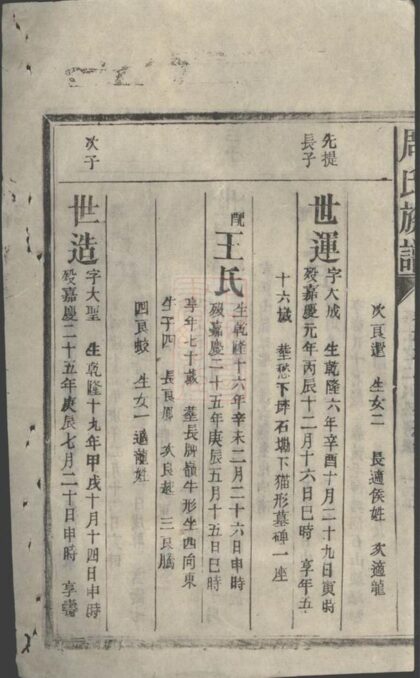 周氏族譜
次良還 生女二 長適侯姓 次適龍
先提
長子
世運
字大成 生乾隆六年辛酉十月二十九日寅時
殁嘉慶元年丙辰十二月十六日巳時 享年五
十六歲 塟愁下坪石塝下猫形墓碑一座
配
王氏
生乾隆十六年辛未二月二十六日申時
殁嘉慶二十五年庚辰五月十五日巳時
享年七十歲 墓長牌嶺牛形坐西向東
生子四 長良 次良 三良騰
四良蛟 生女一適龍姓
次子
世造
字大聖 生乾隆十九年甲戌十月十四日申時
殁嘉慶二十五年庚辰七月二十日申時 享壽